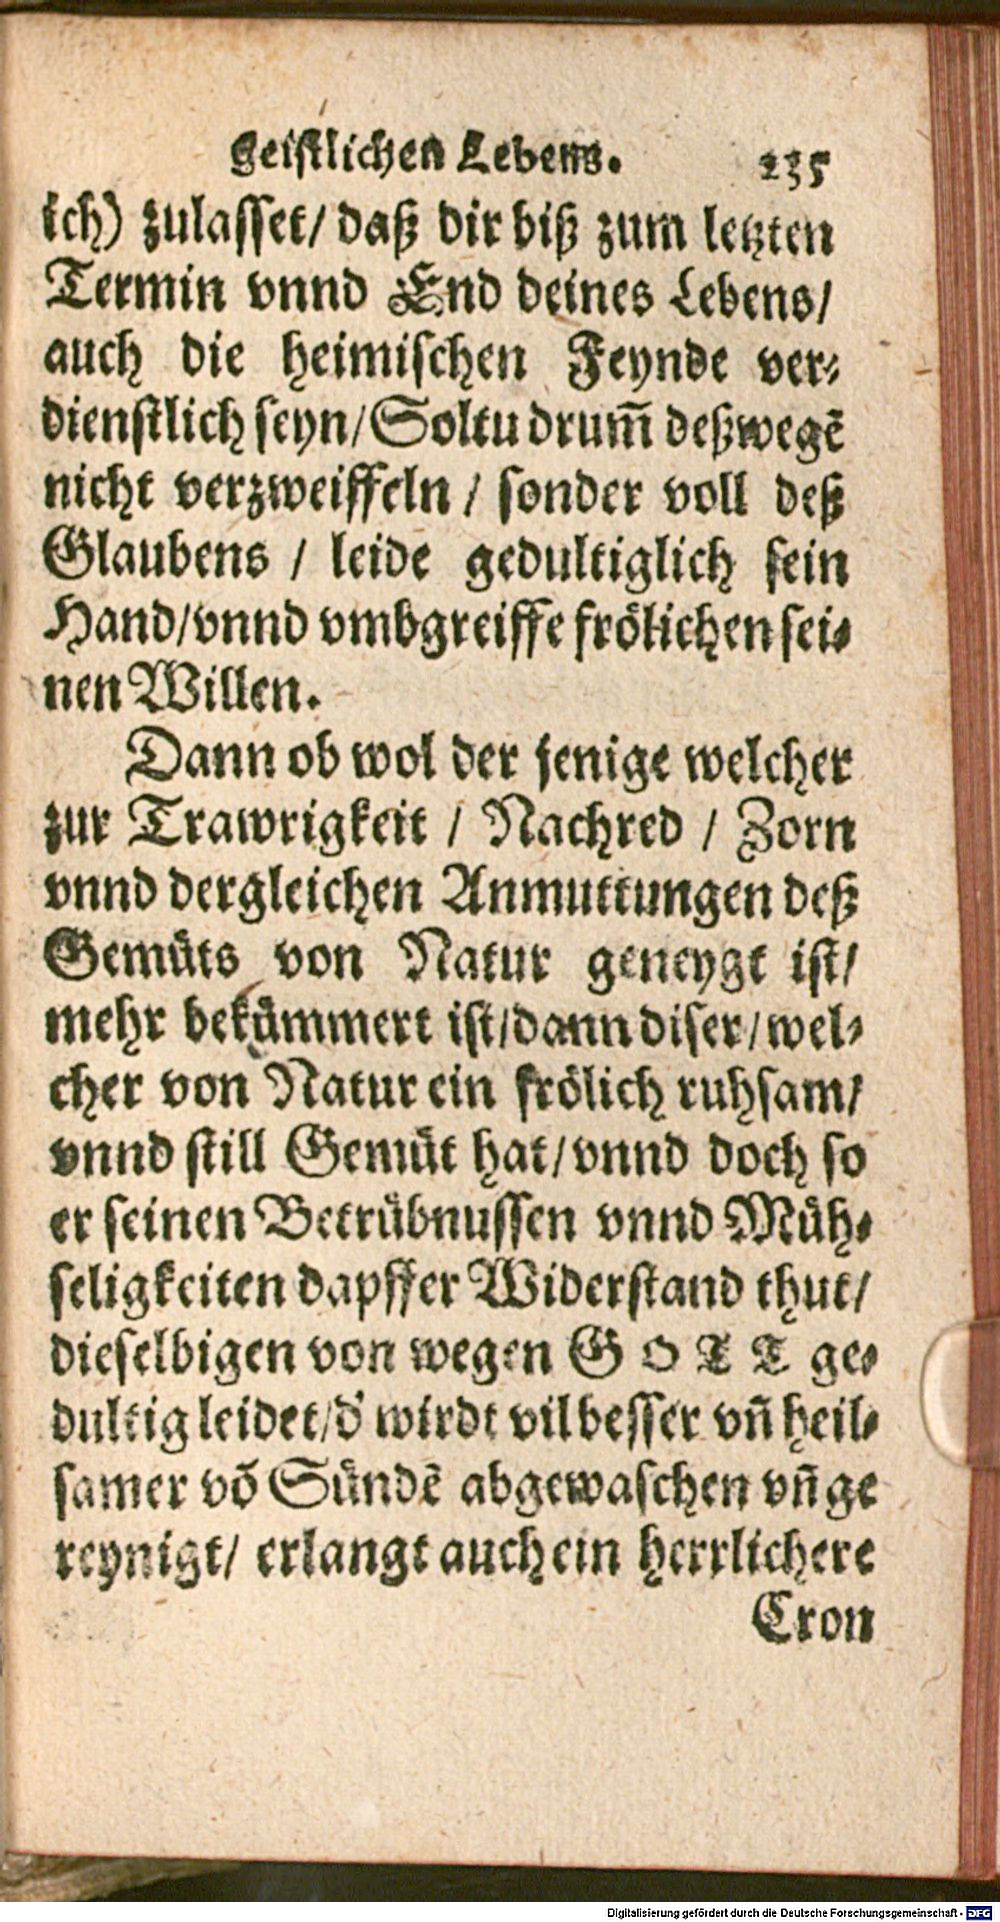 geistlichen Lebens. 235
ich) zulasset/ daß dir biß zum letzten
Termin vnnd End deines Lebens/
auch die heimischen Feynde ver-
dienstlich seyn/ Soltu drum̃ deßwegẽ
nicht verzweiffeln / sonder voll deß
Glaubens / leide gedultiglich sein
Hand/ vnnd vmbgreiffe frölichen sei-
nen Willen.
Dann ob wol der jenige welcher
zur Trawrigkeit / Nachred / Zorn
vnnd dergleichen Anmuttungen deß
Gemüts von Natur geneygt ist/
mehr bekümmert ist/ dann diser/ wel-
cher von Natur ein frölich ruhsam/
vnnd still Gemüt hat/ vnnd doch so
er seinen Betrübnussen vnnd Müh-
seligkeiten dapffer Widerstand thut/
dieselbigen von wegen GOTT ge-
dultig leidet/ d' wirdt vil besser vñ heil-
samer võ Sündẽ abgewaschen vñ ge
reynigt/ erlangt auch ein herrlichere
Cron
Digitalisierung gefördert durch die Deutsche Forschungsgemeinschaft - DFG